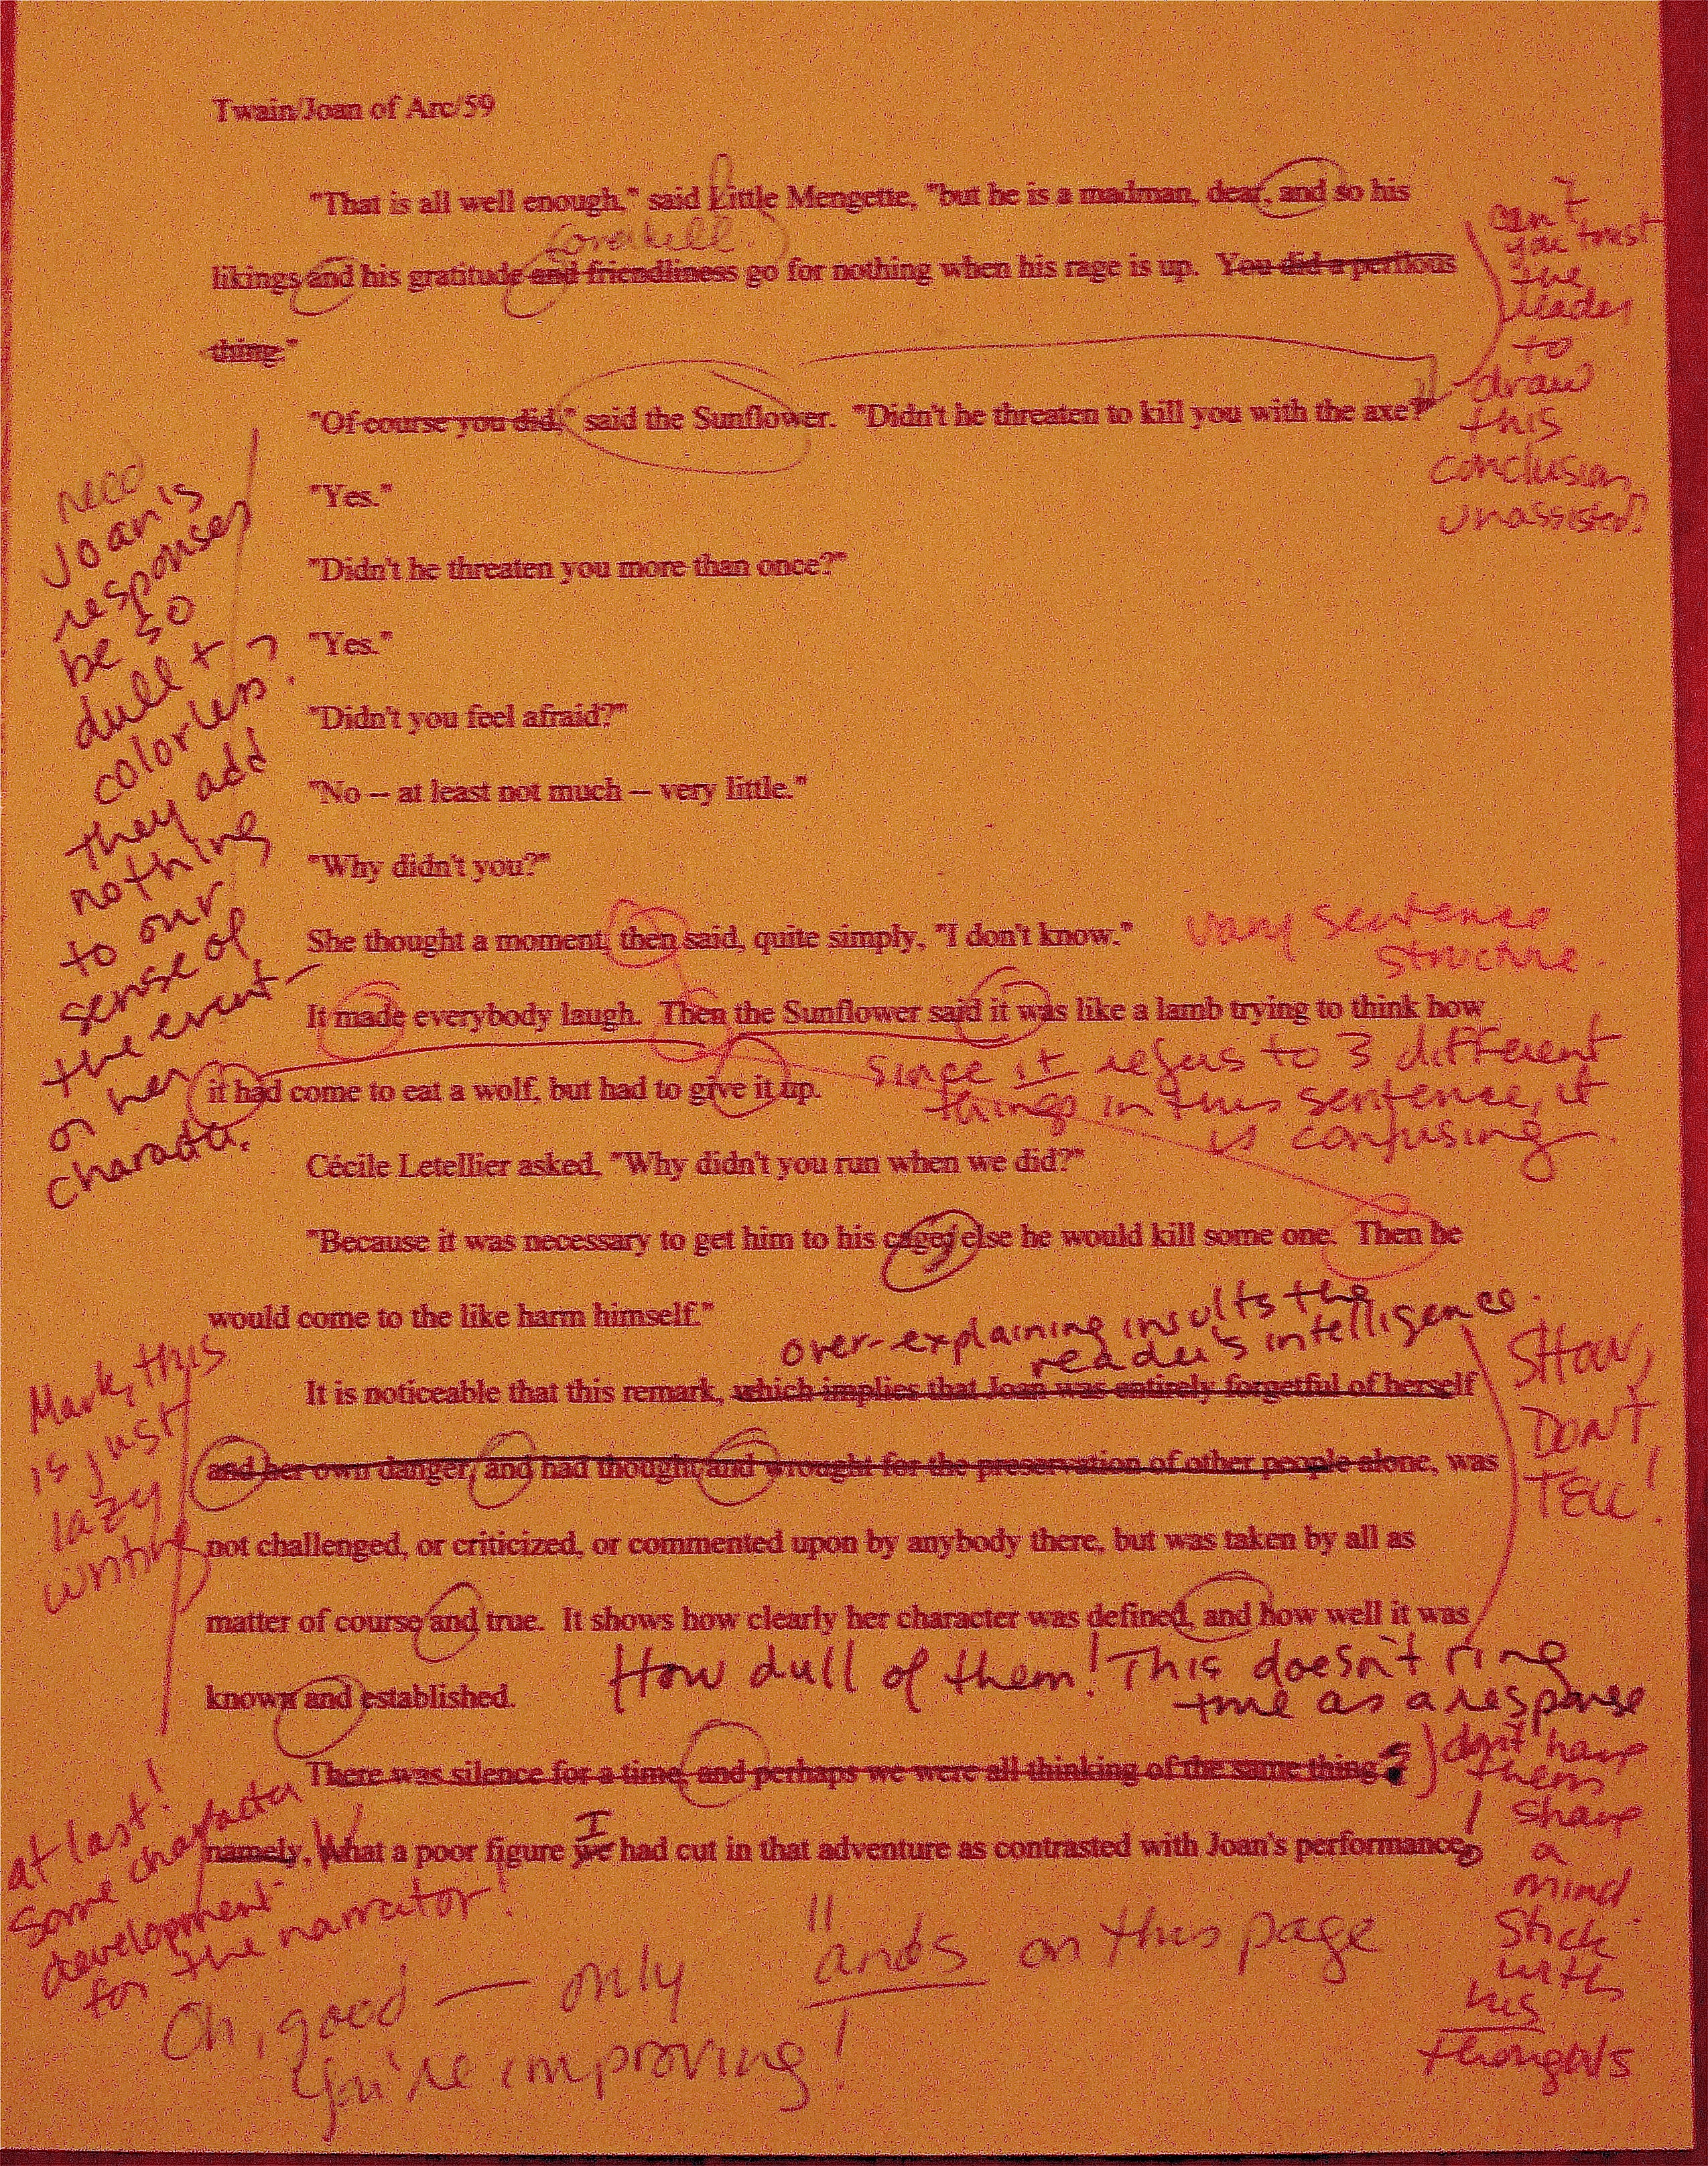 Twain/Joan of Arc/59
"That is all well enough," said Little Mengette, "but he is a madman, dear, and so his
overkill.
likings and his gratitude and friendliness go for nothing when his rage is up.  You did a perilous
thing."
can't
you trust
the
reader
to
draw
this
conclusion,
unassisted?
"Of course you did," said the Sunflower.  "Didn't he threaten to kill you with the axe?"
"Yes."
"Didn't he threaten you more than once?"
"Yes."
"Didn't you feel afraid?"
"No – at least not much – very little."
"Why didn't you?"
need
Joan's
responses
be so
dull +
colorless?
they add
nothing
to our
sense of
the event
or her
character.
She thought a moment, then said, quite simply, "I don't know."
vary sentence
structure.
It made everybody laugh.  Then the Sunflower said it was like a lamb trying to think how
it had come to eat a wolf, but had to give it up.
Since it refers to 3 different
things in this sentence, it
is confusing.
Cécile Letellier asked, "Why didn't you run when we did?"
"Because it was necessary to get him to his cage; else he would kill some one.  Then he
would come to the like harm himself."
over-explaining insults the
reader's intelligence.
It is noticeable that this remark, which implies that Joan was entirely forgetful of herself
and her own danger, and had thought and wrought for the preservation of other people alone, was
not challenged, or criticized, or commented upon by anybody there, but was taken by all as
matter of course and true.  It shows how clearly her character was defined, and how well it was
known and established.
Mark, this
is just
lazy
writing
SHOW,
DON'T
TELL!
How dull of them! This doesn't ring
true as a response
There was silence for a time, and perhaps we were all thinking of the same thing
namely, What a poor figure we had cut in that adventure as contrasted with Joan's performance
I
W
!
don't have
them
share
a
mind.
Stick
with
his
thoughts
at last!
some character
development
for the narrator!
Oh, good — only 11 ands on this page
You're improving!